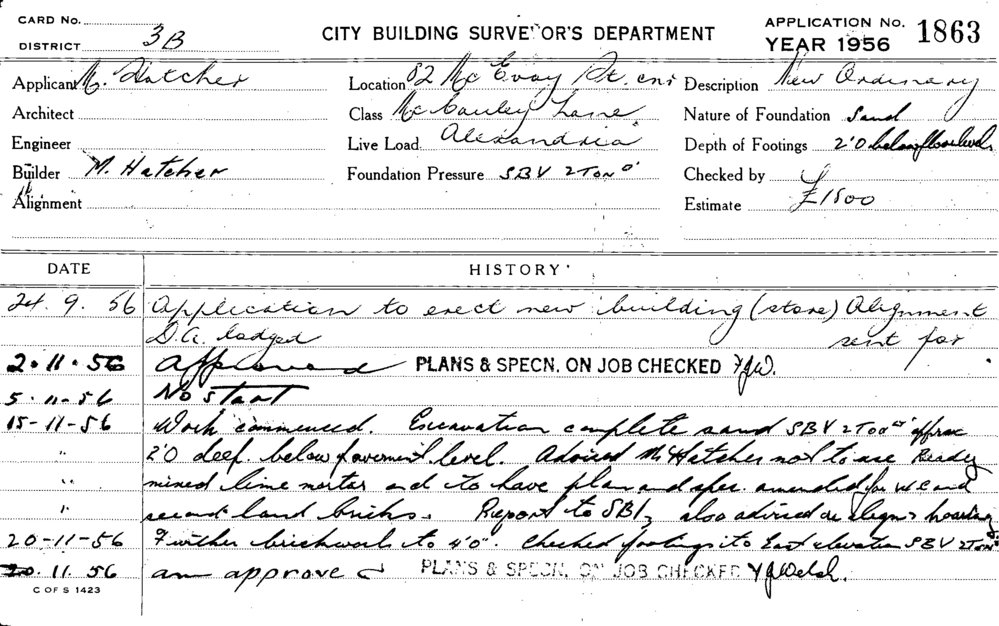 CARD No.
DISTRICT 3B
CITY BUILDING SURVEYOR'S DEPARTMENT
APPLICATION No. 1863
YEAR 1956
Applicant M. Hatcher
Location 82 McEvoy St. cnr
Description New Ordinary
Architect
Class McCauley Lane,
Nature of Foundation Sand
Engineer
Live Load Alexandria
Depth of Footings 2'0 below floor level
Builder M. Hatcher
Foundation Pressure SBV 2Ton□'
Checked by
Alignment
Estimate £1800
DATE
HISTORY
24. 9. 56 Application to erect new building (store) Alignment
D.A. lodged sent for
2·11·56 Approved PLANS & SPECN. ON JOB CHECKED
5·11·56 No start
15-11-56 Work commenced. Excavation complete sand SBV 2Ton□' approx
" 2'0 deep below pavement level. Advised M Hatcher not to use Ready
" mixed lime mortar and to have plan and spec. amended for W.C and
" second hand bricks. Report to SBI, also advised re align
20-11-56 Further brickwork to 4'0". Checked footings to East elevation SBV 2Ton□'
20.11.56 am approved PLANS & SPECN. ON JOB CHECKED Welch.
C OF S 1423